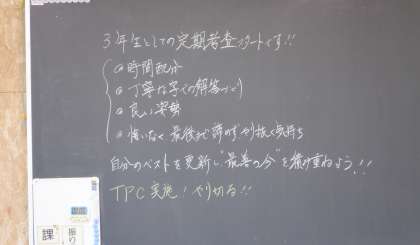 3年生としての定期考査スタートです!!
時間配分
丁寧な字での解答づくり
良い姿勢
悔いなく最後まで諦めずやり抜く気持ち
自分のベストを更新し"最善の今"を積み重ねよう!!
TPC実施!やり切る!!
課
振り